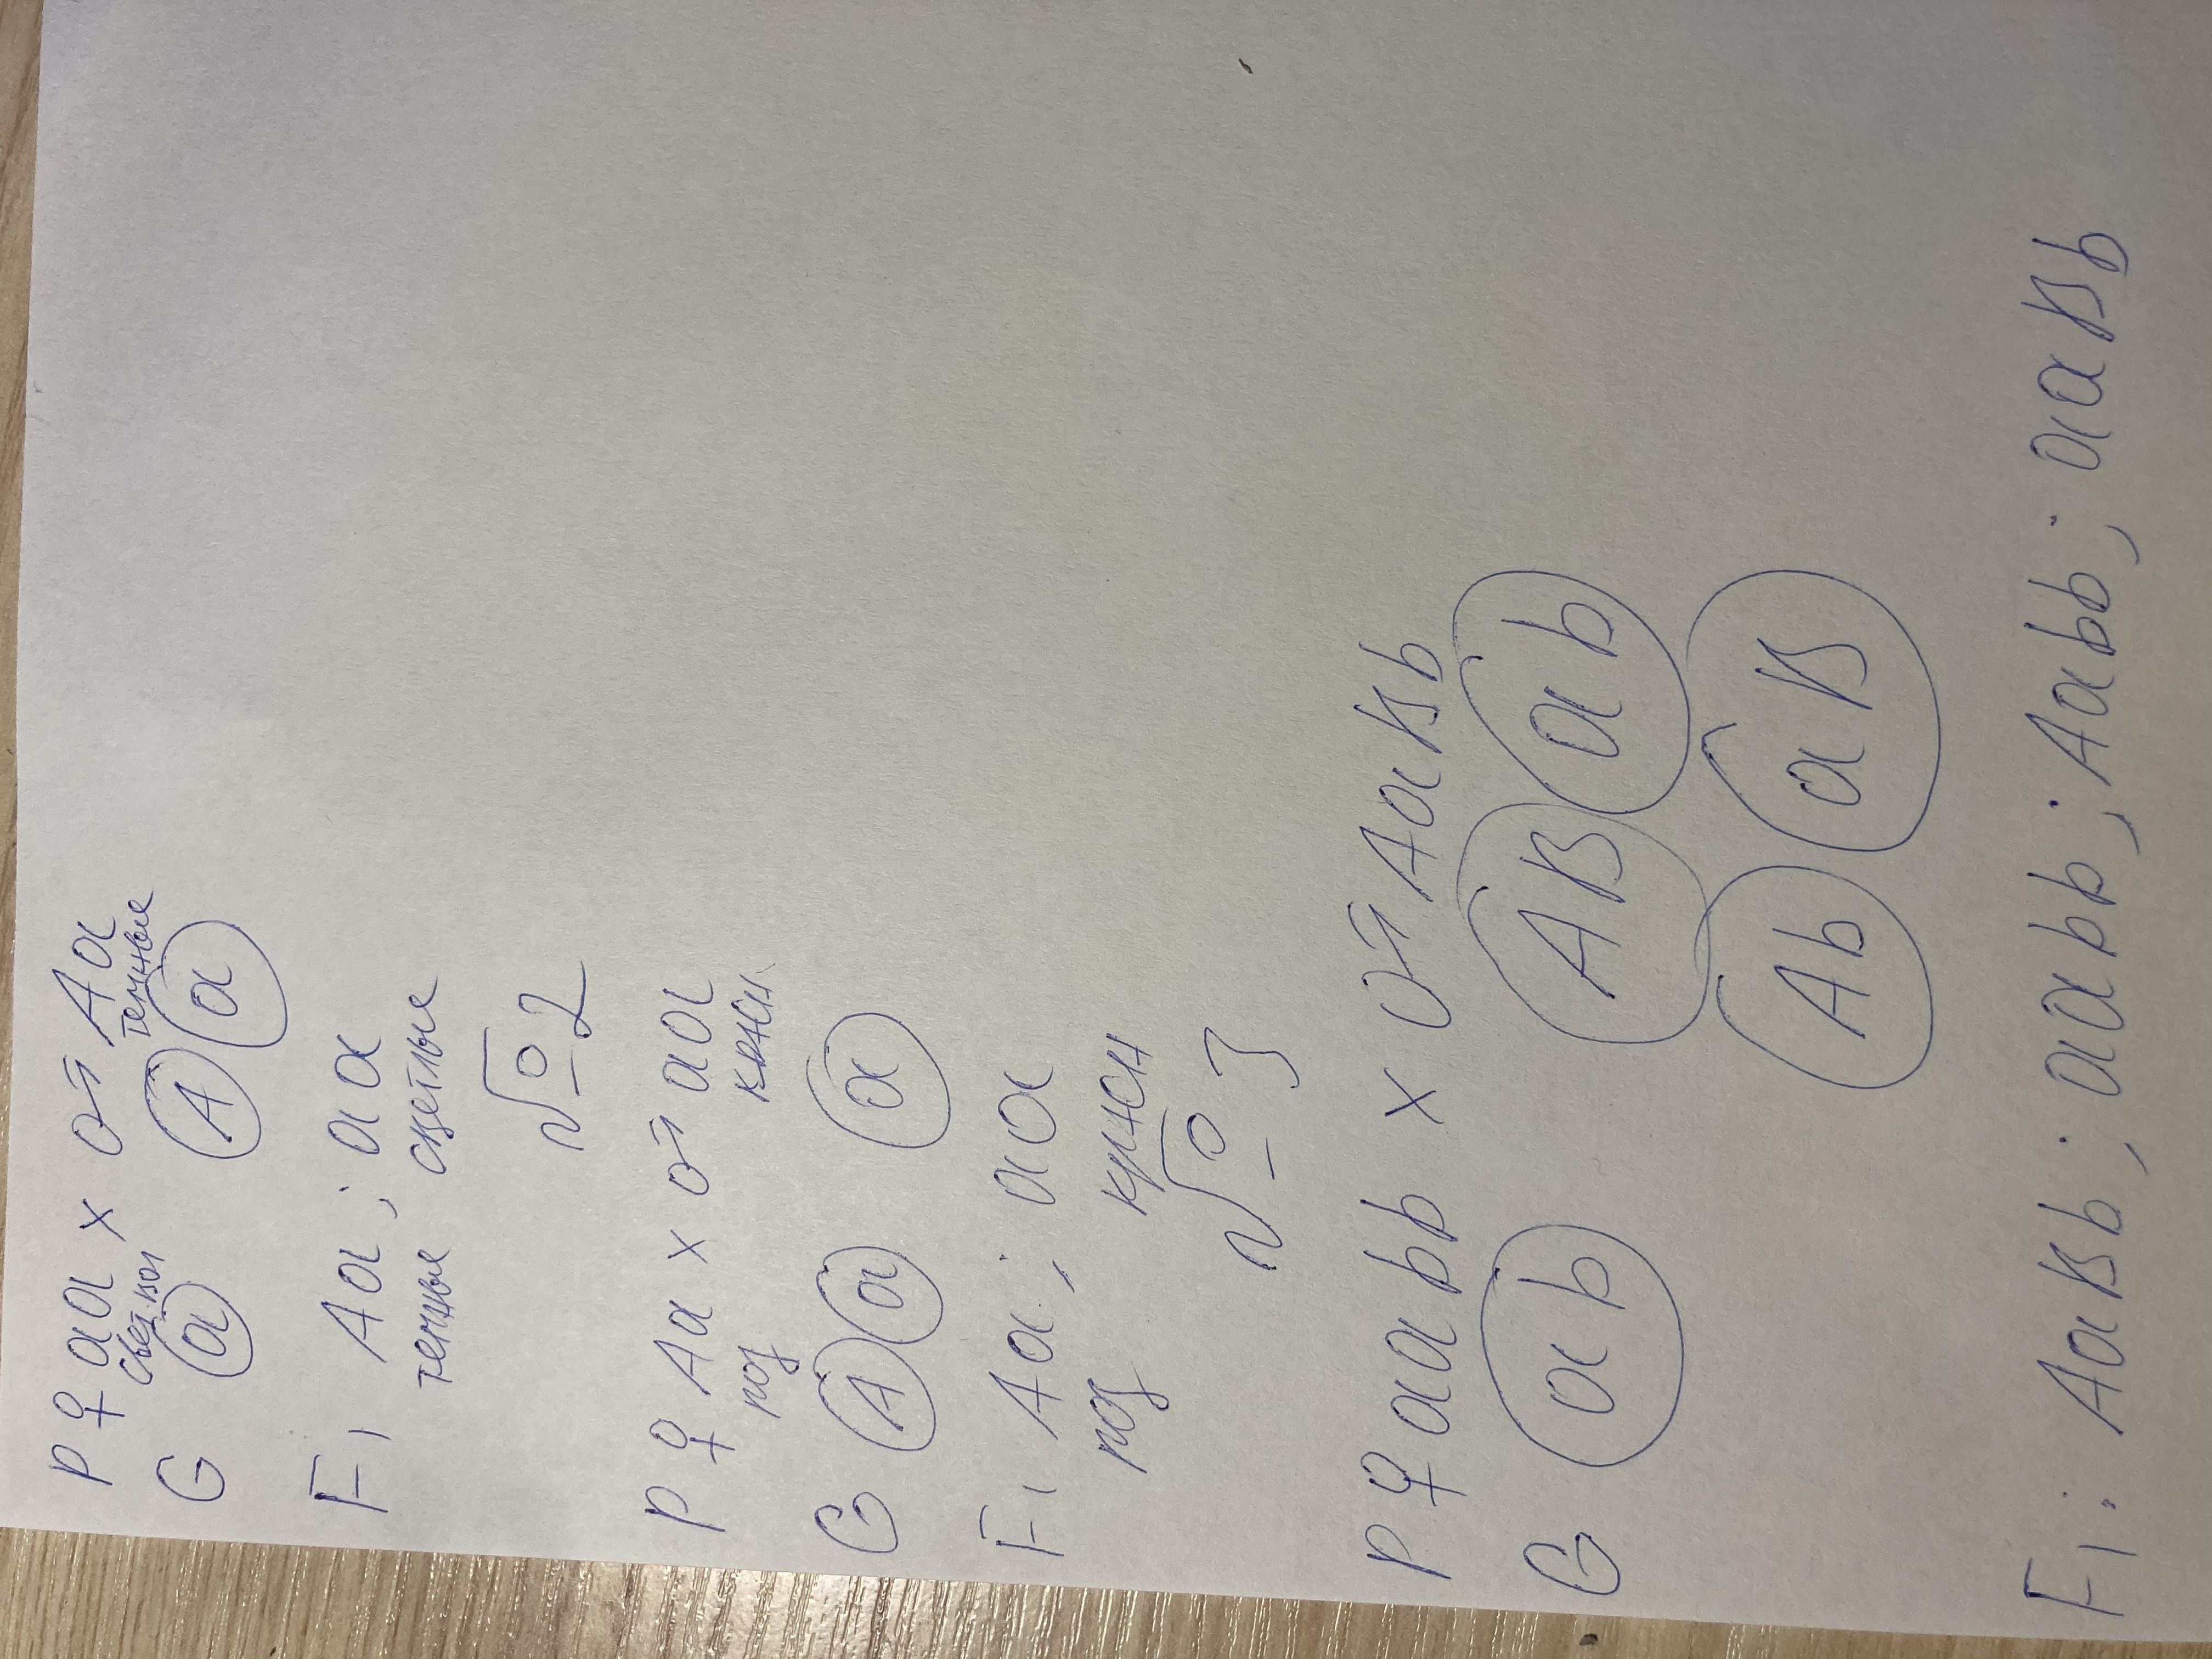 P ♀ aa × ♂ Aa
свет. вол темные
G a A a
F1 Aa; aa
темные светлые
№2
P ♀ Aa × ♂ aa
роз красн
G A a a
F1 Aa; aa
роз красн
№3
P ♀ aabb × ♂ AaBb
G ab AB ab
Ab aB
F1: AaBb; aabb; Aabb; aaBb